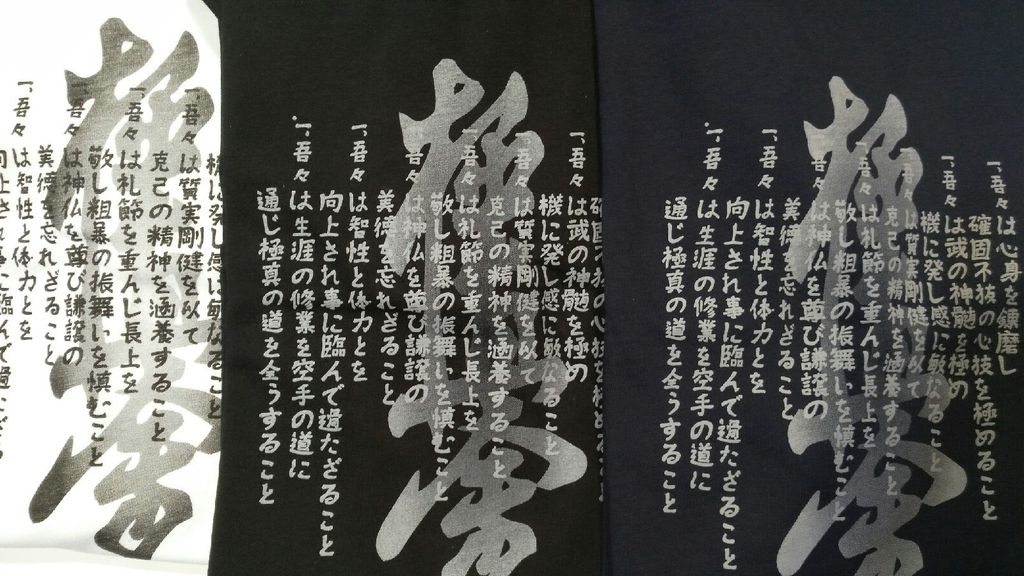 極真
一、吾々は心身を錬磨し
確固不抜の心技を極めること
一、吾々は武の神髄を極め
機に発し感に敏なること
一、吾々は質実剛健を以て
克己の精神を涵養すること
一、吾々は礼節を重んじ長上を
敬し粗暴の振舞いを慎むこと
一、吾々は神仏を尊び謙譲の
美徳を忘れざること
一、吾々は智性と体力とを
向上させ事に臨んで過たざること
一、吾々は生涯の修業を空手の道に
通じ極真の道を全うすること
極真
確固不抜の心技
一、吾々は武の神髄を極め
機に発し感に敏なること
一、吾々は質実剛健を以て
克己の精神を涵養すること
一、吾々は礼節を重んじ長上を
敬し粗暴の振舞いを慎むこと
一、吾々は神仏を尊び謙譲の
美徳を忘れざること
一、吾々は智性と体力とを
向上させ事に臨んで過たざること
一、吾々は生涯の修業を空手の道に
通じ極真の道を全うすること
極真
機に発し感に敏なること
一、吾々は質実剛健を以て
克己の精神を涵養すること
一、吾々は礼節を重んじ長上を
敬し粗暴の振舞いを慎むこと
一、吾々は神仏を尊び謙譲の
美徳を忘れざること
一、吾々は智性と体力とを
向上させ事に臨んで過たざる